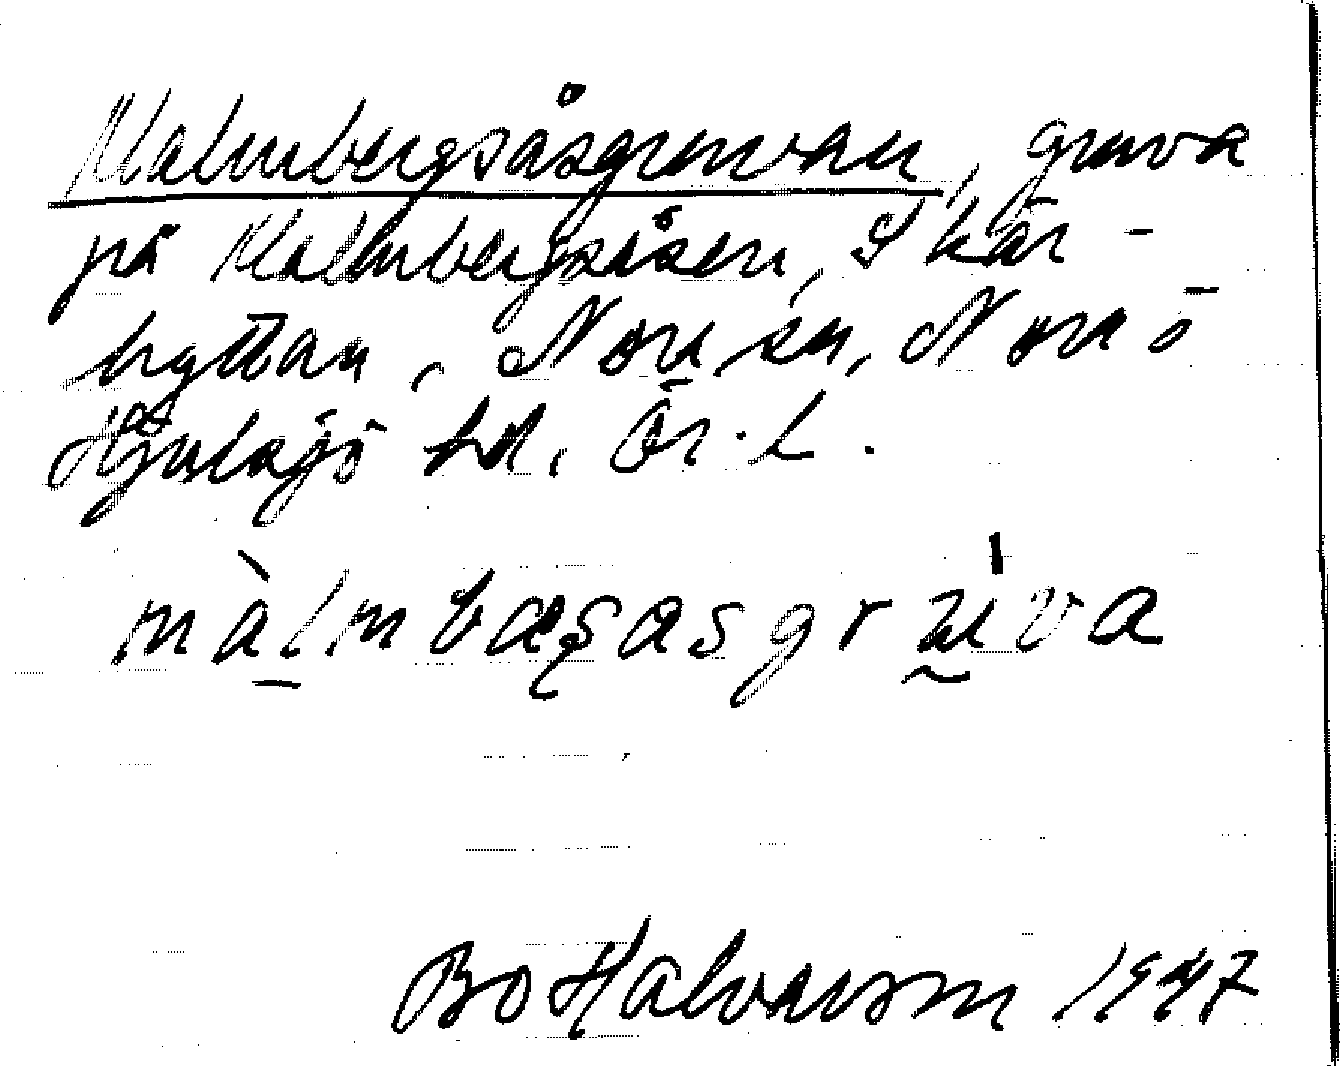 Malmbergsåsgruvan, gruva
på Malmbergsåsen, Skär-
hyttan, Nora sn, Nora o
Hjulsjö hd. Ör. L.
màlmbæʂasgrʉ̀va
Bo Halvarson 1947